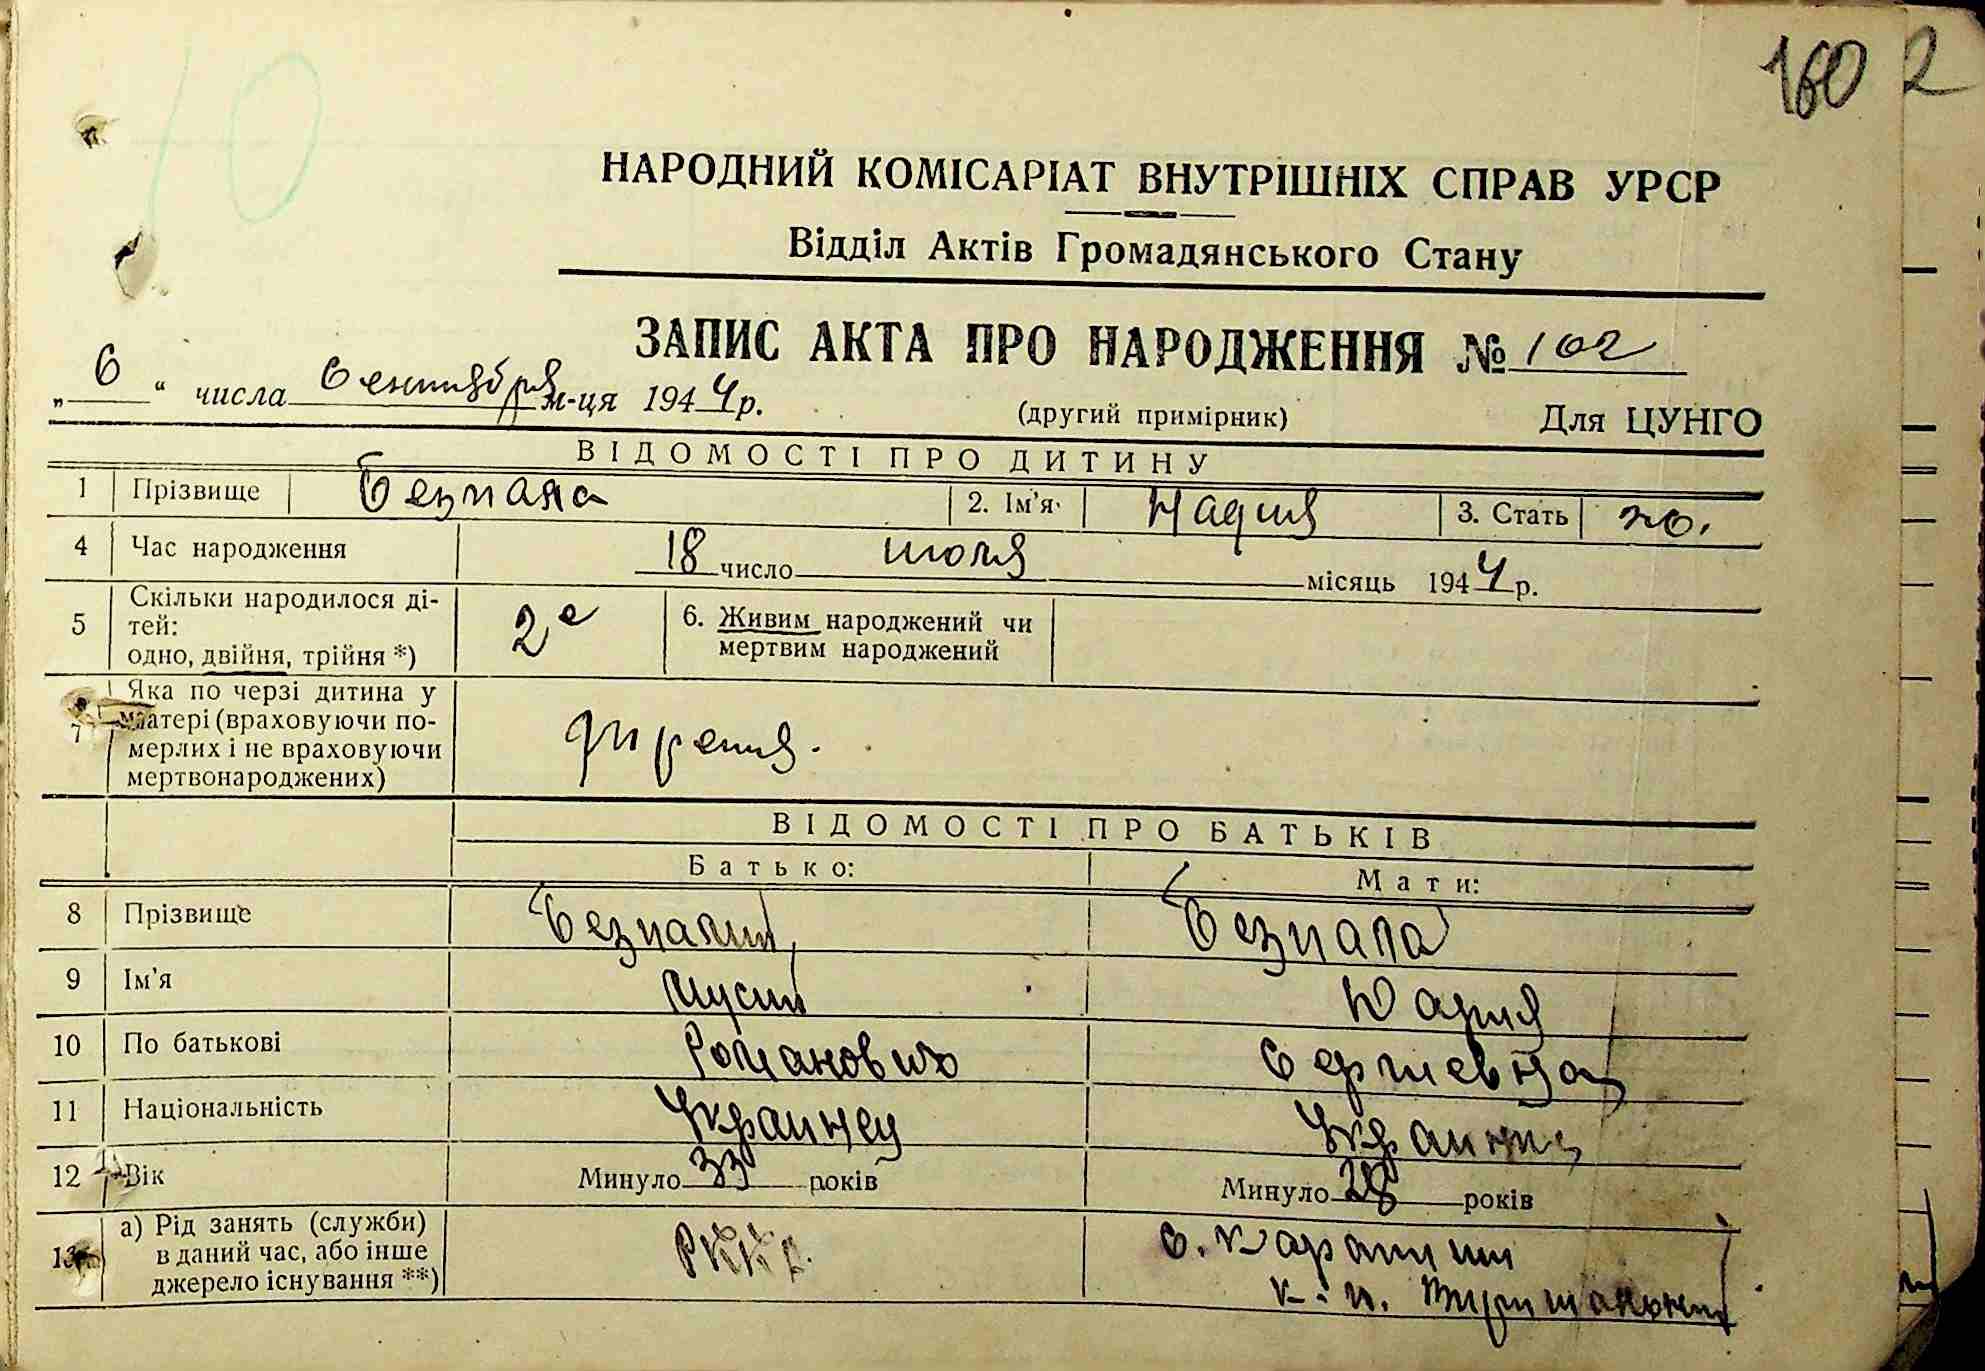 160 2
НАРОДНИЙ КОМІСАРІАТ ВНУТРІШНІХ СПРАВ УРСР
Відділ Актів Громадянського Стану
ЗАПИС АКТА ПРО НАРОДЖЕННЯ № 102
„6“ числа Сентября м-ця 1944 р. (другий примірник) Для ЦУНГО
ВІДОМОСТІ ПРО ДИТИНУ
1 Прізвище Безпала 2. Ім'я Надия 3. Стать ж.
4 Час народження 18 число июля місяць 1944 р.
5 Скільки народилося ді-
тей:
одно, двійня, трійня *) 2е 6. Живим народжений чи
мертвим народжений
7 Яка по черзі дитина у
матері (враховуючи по-
мерлих і не враховуючи
мертвонароджених)
ВІДОМОСТІ ПРО БАТЬКІВ
Батько: Мати:
8 Прізвище Безпалий Безпала
9 Ім'я Мусий Мария
10 По батькові Романович Сергиевна
11 Національність Украинец Украинка
12 Вік Минуло 33 років Минуло 28 років
13 а) Рід занять (служби)
в даний час, або інше
джерело існування **) РККА.